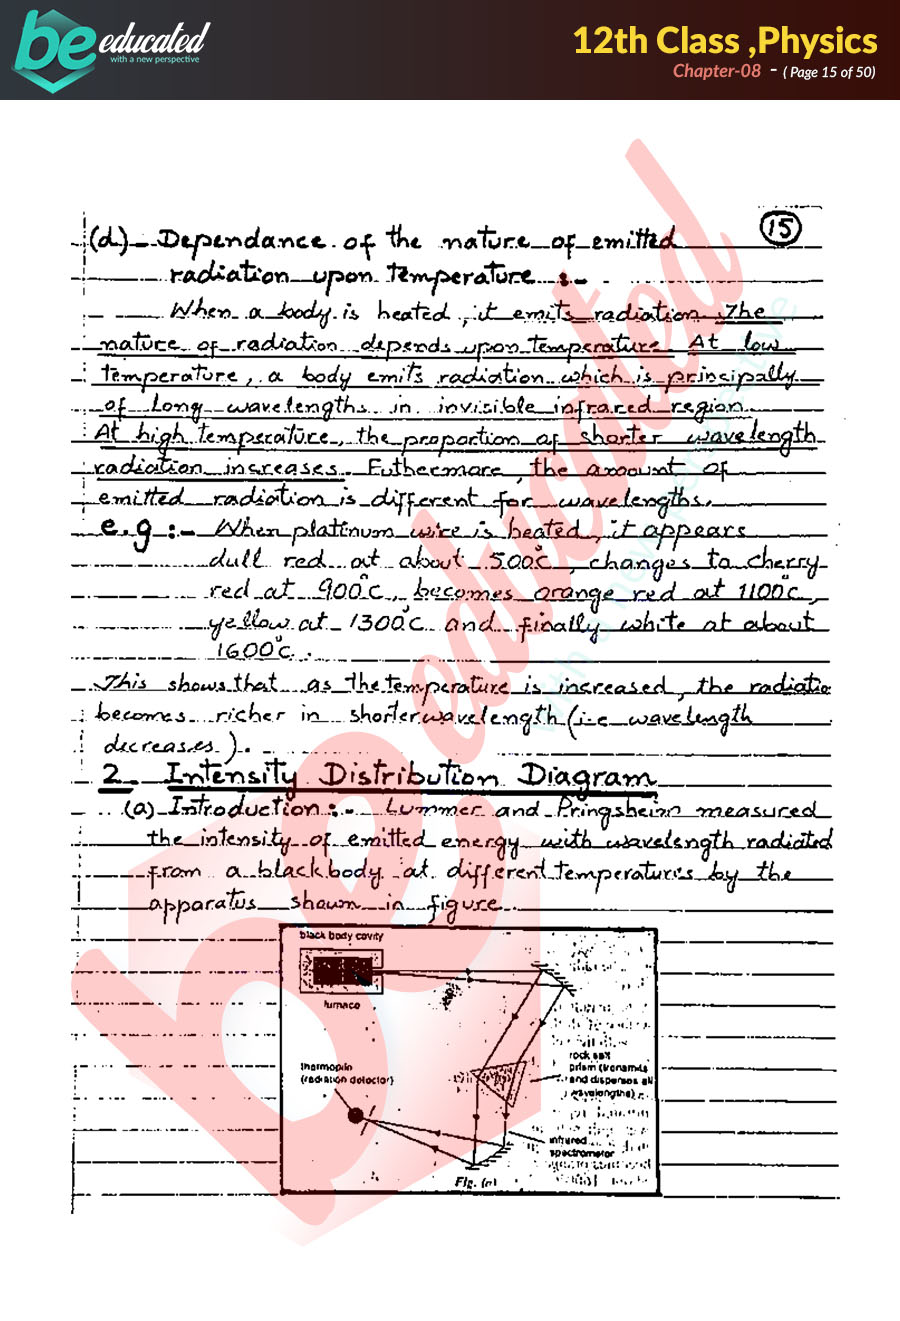 be educated
with a new perspective
12th Class ,Physics
Chapter-08 - ( Page 15 of 50)
15
(d)- Dependance of the nature of emitted
radiation upon temperature :-
When a body is heated, it emits radiation. The
nature of radiation depends upon temperature. At low
temperature, a body emits radiation which is principally
of long wavelengths in invisible infrared region.
At high temperature, the proportion of shorter wavelength
radiation increases. Futhermore, the amount of
emitted radiation is different for wavelengths.
e.g :- When platinum wire is heated, it appears
dull red at about 500°C, changes to cherry
red at 900°C, becomes orange red at 1100°C,
yellow at 1300°C and finally white at about
1600°C.
This shows that as the temperature is increased, the radiatio
becomes richer in shorter wavelength (i.e wavelength
decreases).
2. Intensity Distribution Diagram
(a) Introduction:- Lummer and Pringsheim measured
the intensity of emitted energy with wavelength radiated
from a blackbody at different temperatures by the
apparatus shown in figure.
black body cavity
furnace
rock salt
prism (transmits
and disperses all
wavelengths)
thermopile
(radiation detector)
infrared
spectrometer
Fig. (a)
be educated
with a new perspective